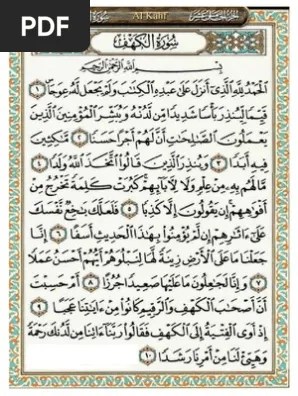 PDF
سورة
Al-Kahf
سُورَةُ الكَهْفِ
بِسْمِ اللَّهِ الرَّحْمَٰنِ الرَّحِيمِ
الْحَمْدُ لِلَّهِ الَّذِي أَنزَلَ عَلَىٰ عَبْدِهِ الْكِتَٰبَ وَلَمْ يَجْعَل لَّهُ عِوَجًا ١
قَيِّمًا لِّيُنذِرَ بَأْسًا شَدِيدًا مِّن لَّدُنْهُ وَيُبَشِّرَ الْمُؤْمِنِينَ الَّذِينَ
يَعْمَلُونَ الصَّٰلِحَٰتِ أَنَّ لَهُمْ أَجْرًا حَسَنًا ٢ مَّٰكِثِينَ
فِيهِ أَبَدًا ٣ وَيُنذِرَ الَّذِينَ قَالُوا اتَّخَذَ اللَّهُ وَلَدًا ٤
مَّا لَهُم بِهِ مِنْ عِلْمٍ وَلَا لِآبَائِهِمْ كَبُرَتْ كَلِمَةً تَخْرُجُ مِنْ
أَفْوَٰهِهِمْ إِن يَقُولُونَ إِلَّا كَذِبًا ٥ فَلَعَلَّكَ بَٰخِعٌ نَّفْسَكَ
عَلَىٰ ءَاثَٰرِهِمْ إِن لَّمْ يُؤْمِنُوا بِهَٰذَا الْحَدِيثِ أَسَفًا ٦ إِنَّا
جَعَلْنَا مَا عَلَى الْأَرْضِ زِينَةً لَّهَا لِنَبْلُوَهُمْ أَيُّهُمْ أَحْسَنُ عَمَلًا
٧ وَإِنَّا لَجَٰعِلُونَ مَا عَلَيْهَا صَعِيدًا جُرُزًا ٨ أَمْ حَسِبْتَ
أَنَّ أَصْحَٰبَ الْكَهْفِ وَالرَّقِيمِ كَانُوا مِنْ ءَايَٰتِنَا عَجَبًا ٩
إِذْ أَوَى الْفِتْيَةُ إِلَى الْكَهْفِ فَقَالُوا رَبَّنَا ءَاتِنَا مِن لَّدُنكَ رَحْمَةً
وَهَيِّئْ لَنَا مِنْ أَمْرِنَا رَشَدًا ١٠